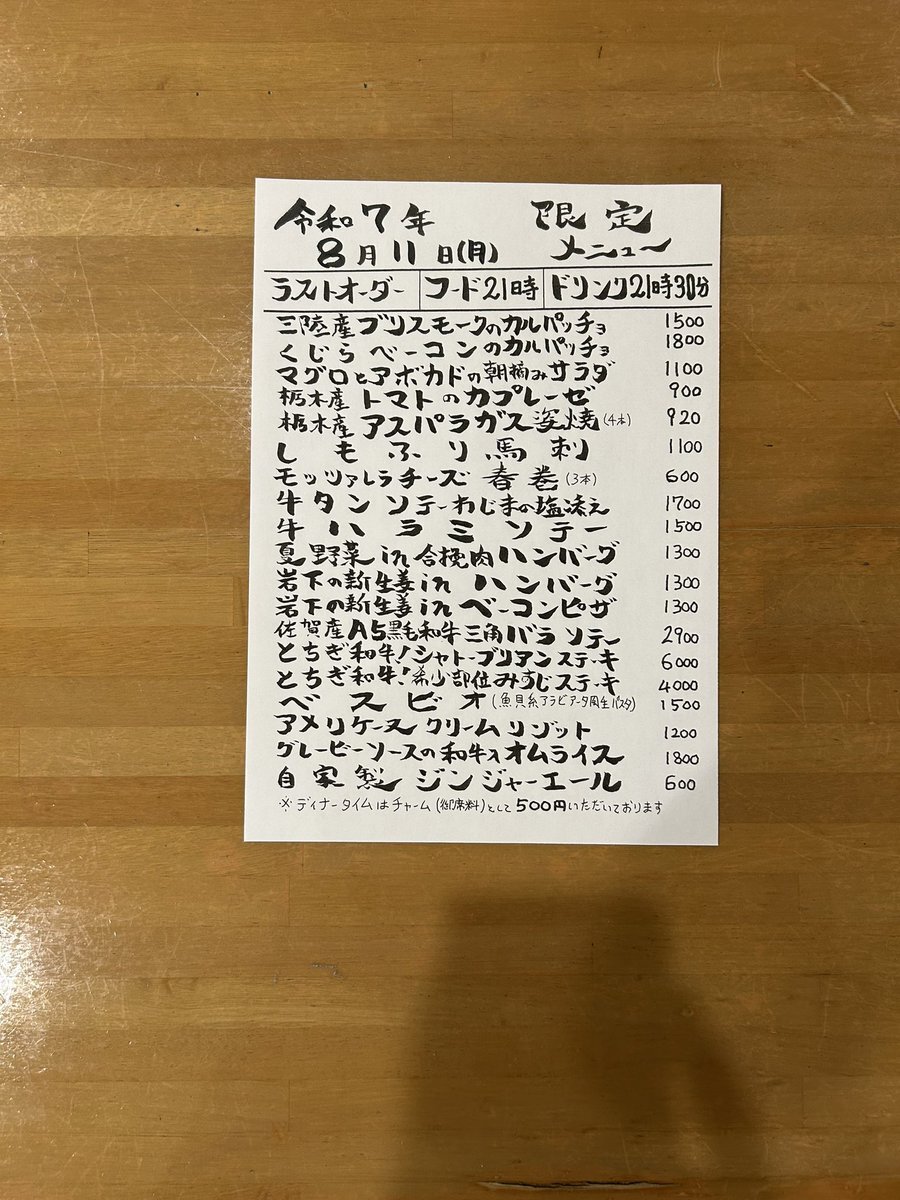 令和7年 限定
8月11日(月) メニュー
ラストオーダー フード21時 ドリンク21時30分
三陸産ブリスモークのカルパッチョ 1500
くじらベーコンのカルパッチョ 1800
マグロとアボカドの朝摘みサラダ 1100
栃木産トマトのカプレーゼ 900
栃木産アスパラガス姿焼(4本) 920
しもふり馬刺 1100
モッツァレラチーズ春巻(3本) 600
牛タンソテーわじまの塩添え 1700
牛ハラミソテー 1500
夏野菜in合挽肉ハンバーグ 1300
岩下の新生姜inハンバーグ 1300
岩下の新生姜inベーコンピザ 1300
佐賀産A5黒毛和牛三角バラソテー 2900
とちぎ和牛!シャトーブリアンステーキ 6000
とちぎ和牛!希少部位みすじステーキ 4000
ベスビオ(魚貝系アラビアータ風生パスタ) 1500
アメリケーヌクリームリゾット 1200
グレービーソースの和牛入オムライス 1800
自家製ジンジャーエール 600
※ディナータイムはチャーム(御席料)として500円いただいております